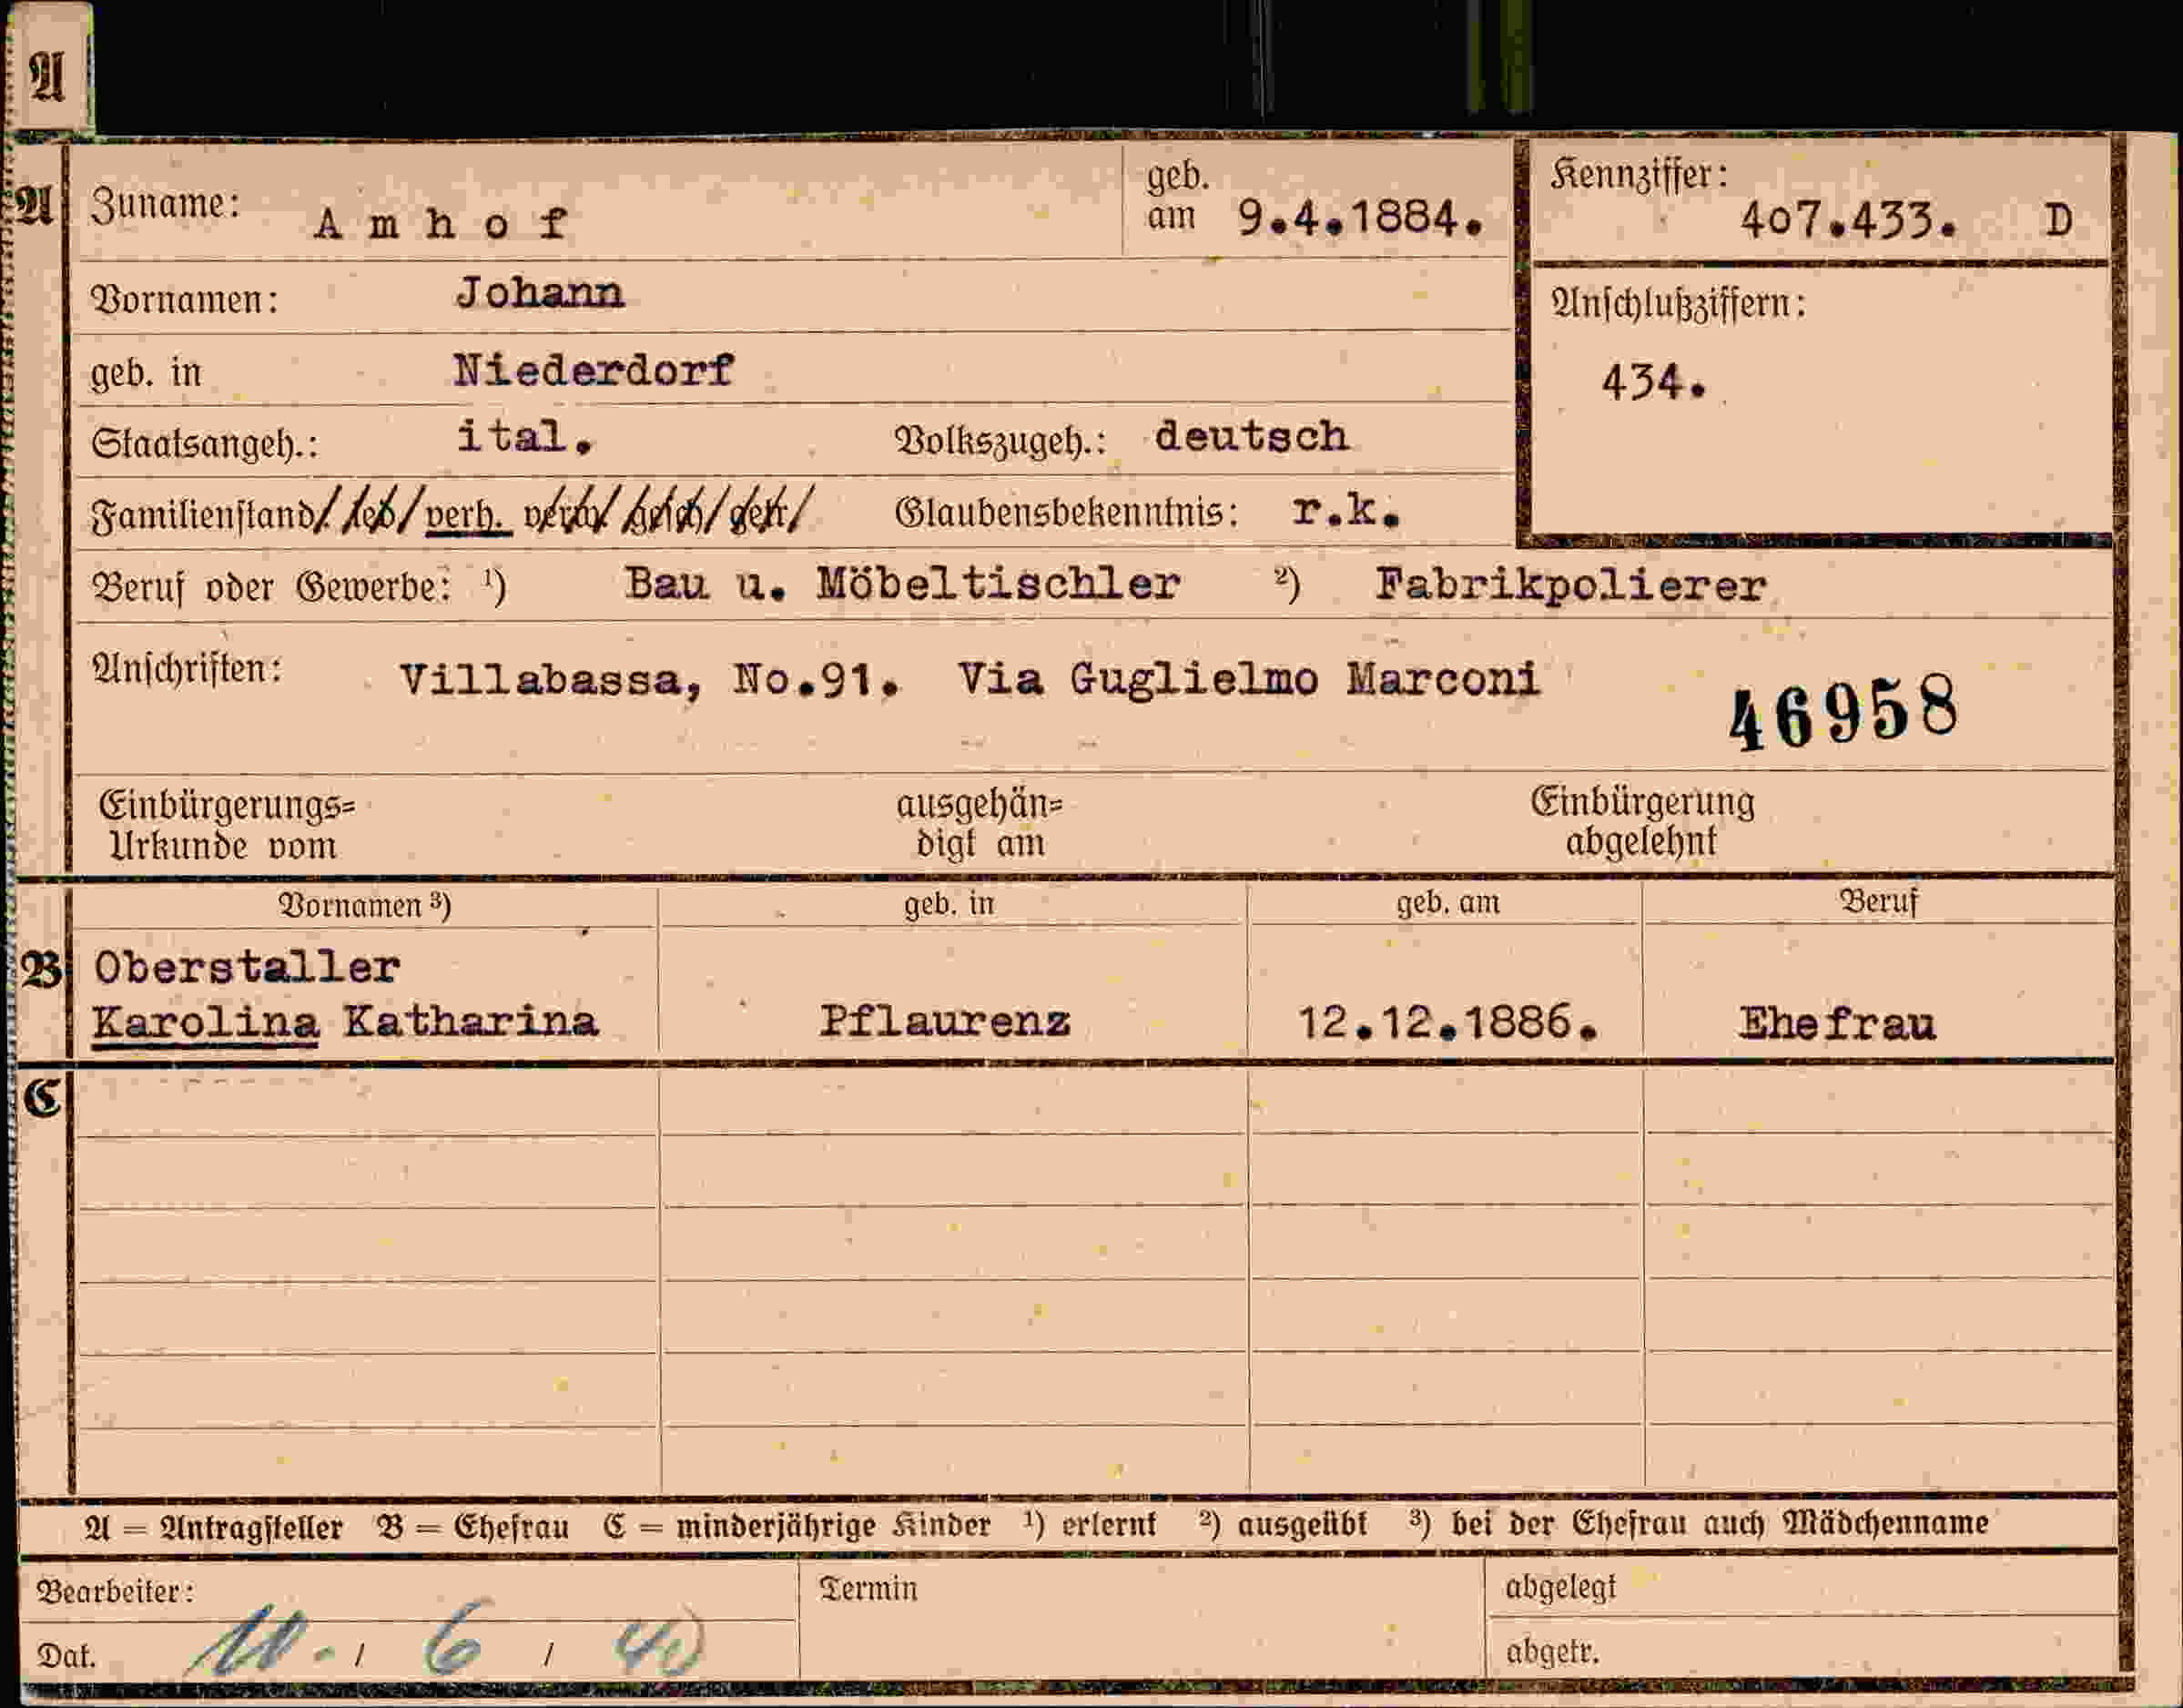 A
A
Zuname: Amhof geb. am 9.4.1884.
Kennziffer: 407.433. D
Vornamen: Johann
Anschlußziffern:
434.
geb. in Niederdorf
Staatsangeh.: ital. Volkszugeh.: deutsch
Familienstand: led. verh. verw. gesch. getr. Glaubensbekenntnis: r.k.
Beruf oder Gewerbe: ¹) Bau u. Möbeltischler ²) Fabrikpolierer
Anschriften: Villabassa, No.91. Via Guglielmo Marconi
46958
Einbürgerungs= ausgehän= Einbürgerung
Urkunde vom digt am abgelehnt
Vornamen ³) geb. in geb. am Beruf
B Oberstaller
Karolina Katharina Pflaurenz 12.12.1886. Ehefrau
C
A = Antragsteller B = Ehefrau C = minderjährige Kinder ¹) erlernt ²) ausgeübt ³) bei der Ehefrau auch Mädchenname
Bearbeiter: Termin abgelegt
Dat. 10. / 6 / 40 abgetr.